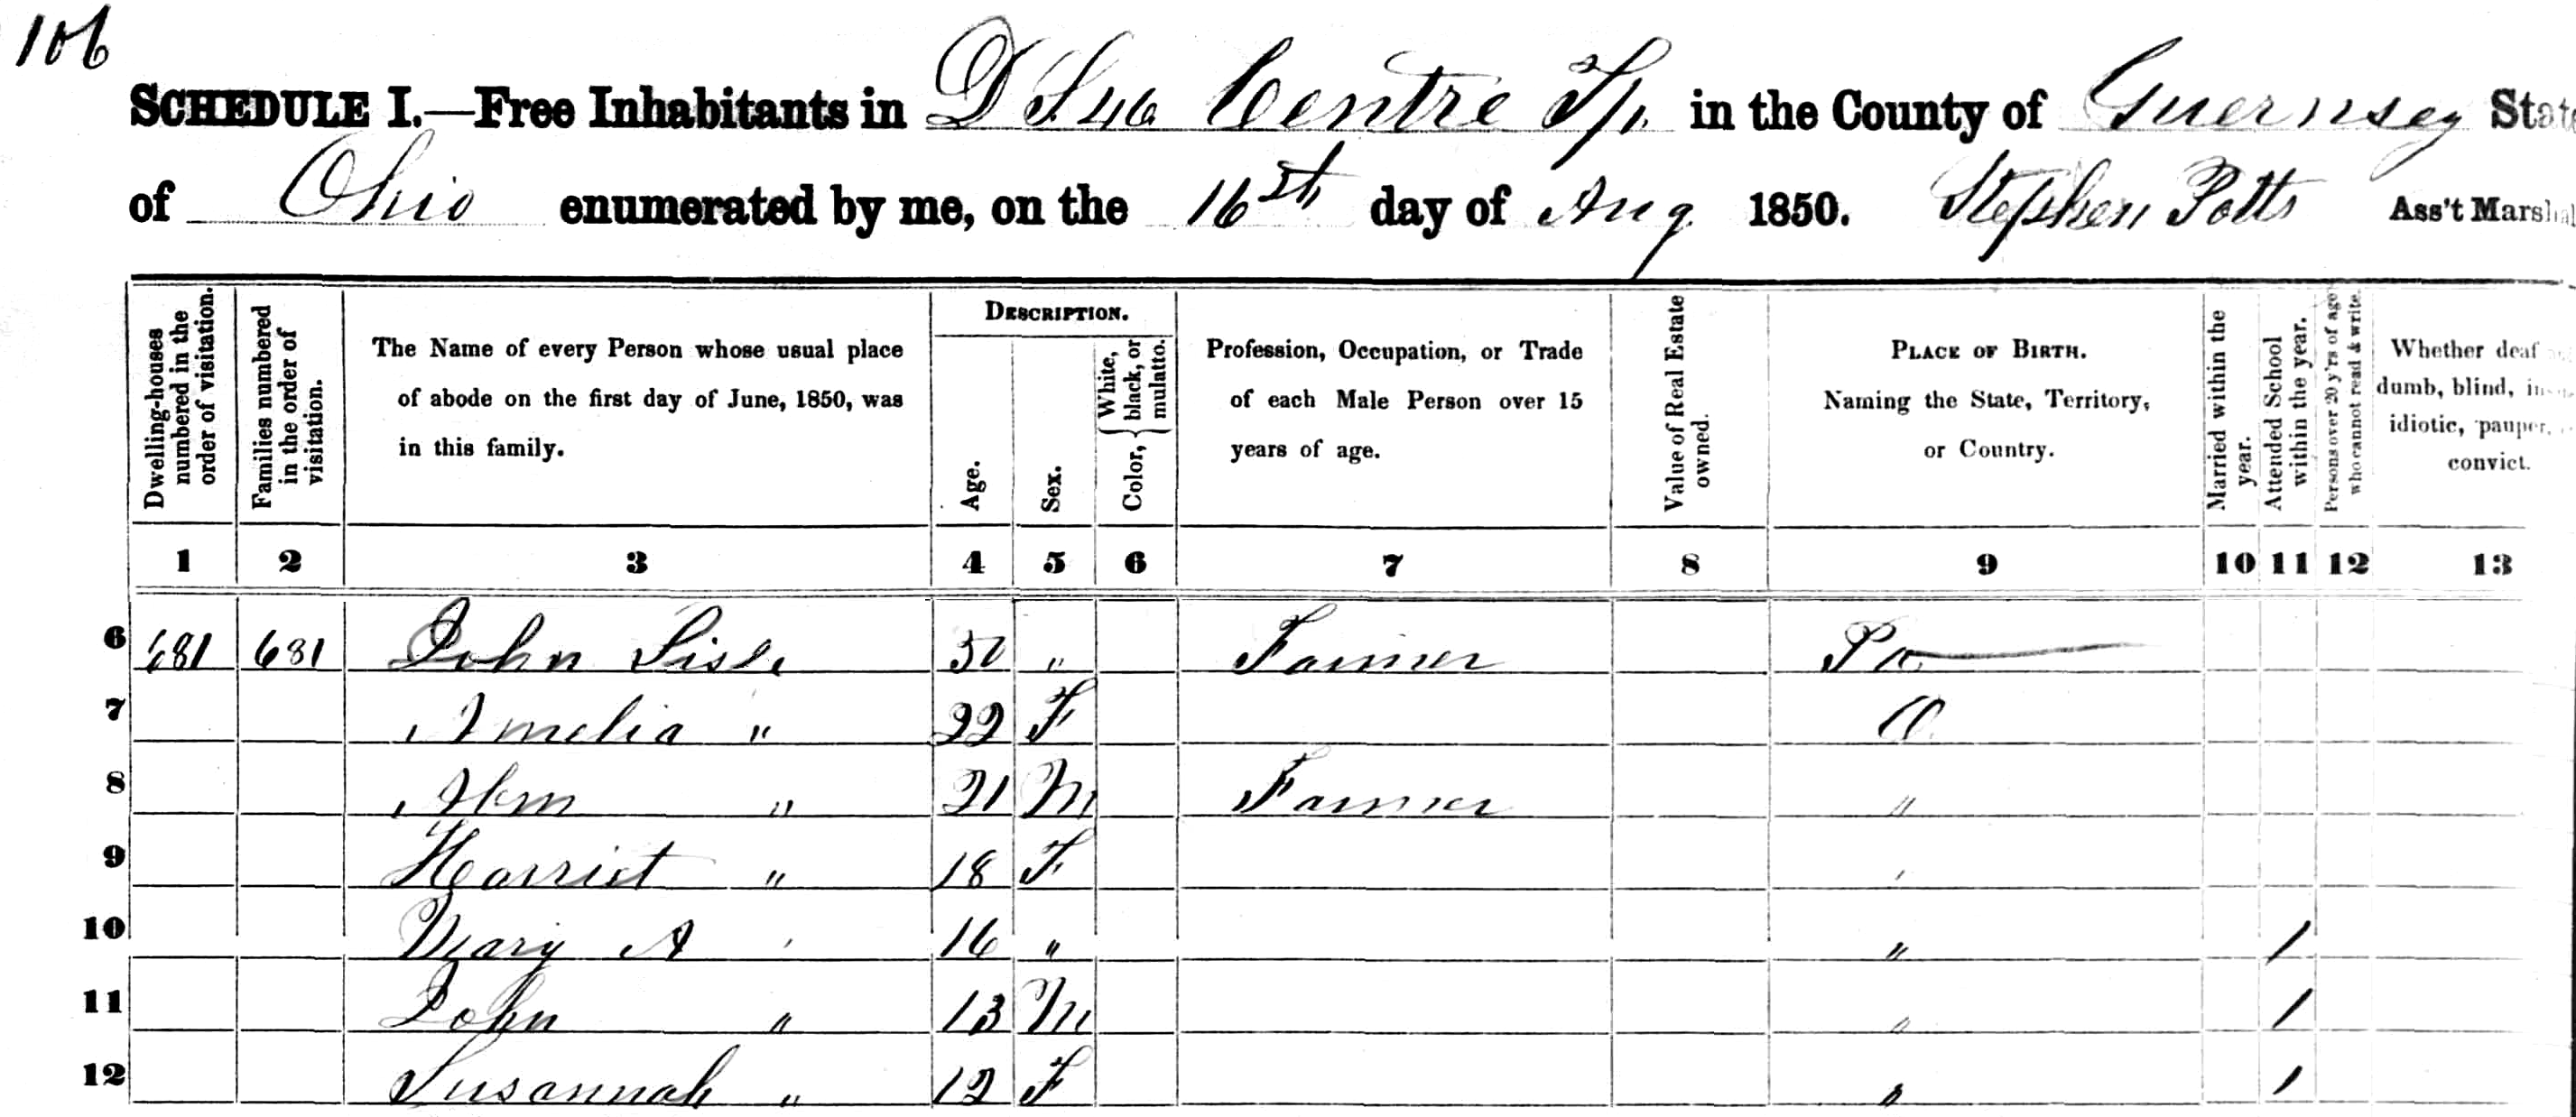 106
SCHEDULE I.—Free Inhabitants in D S 46 Centre Tp. in the County of Guernsey State
of Ohio enumerated by me, on the 16th day of Aug 1850. Stephen Potts Ass't Marshal
Dwelling-houses numbered in the order of visitation.
Families numbered in the order of visitation.
The Name of every Person whose usual place of abode on the first day of June, 1850, was in this family.
DESCRIPTION.
Age.
Sex.
Color, { White, black, or mulatto.
Profession, Occupation, or Trade of each Male Person over 15 years of age.
Value of Real Estate owned.
PLACE OF BIRTH.
Naming the State, Territory, or Country.
Married within the year.
Attended School within the year.
Persons over 20 y'rs of age who cannot read & write.
Whether deaf dumb, blind, idiotic, pauper, convict.
1 2 3 4 5 6 7 8 9 10 11 12 13
6 681 681 John Lisle 50 " Farmer Pa
7 Amelia " 22 F O.
8 Abm " 21 M Farmer "
9 Harriet " 18 F "
10 Mary A " 16 " " 1
11 John " 13 M " 1
12 Susannah " 12 F " 1